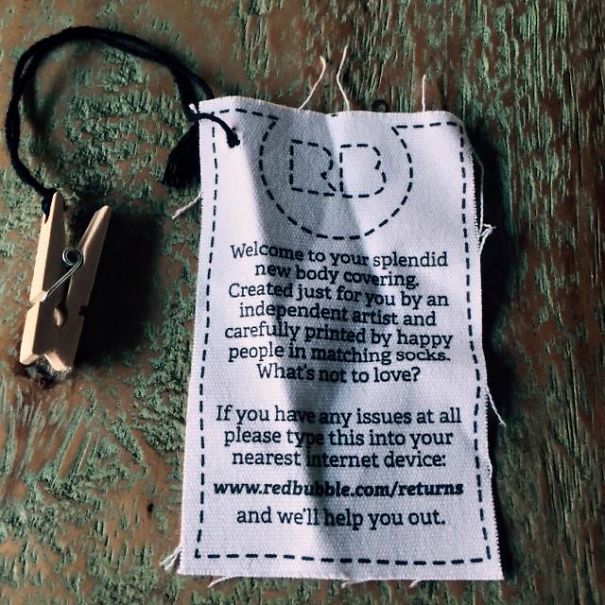 RB
Welcome to your splendid
new body covering.
Created just for you by an
independent artist and
carefully printed by happy
people in matching socks.
What's not to love?
If you have any issues at all
please type this into your
nearest internet device:
www.redbubble.com/returns
and we'll help you out.